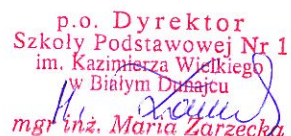 p.o. Dyrektor
Szkoły Podstawowej Nr 1
im. Kazimierza Wielkiego
w Białym Dunajcu
mgr inż. Maria Zarzecka